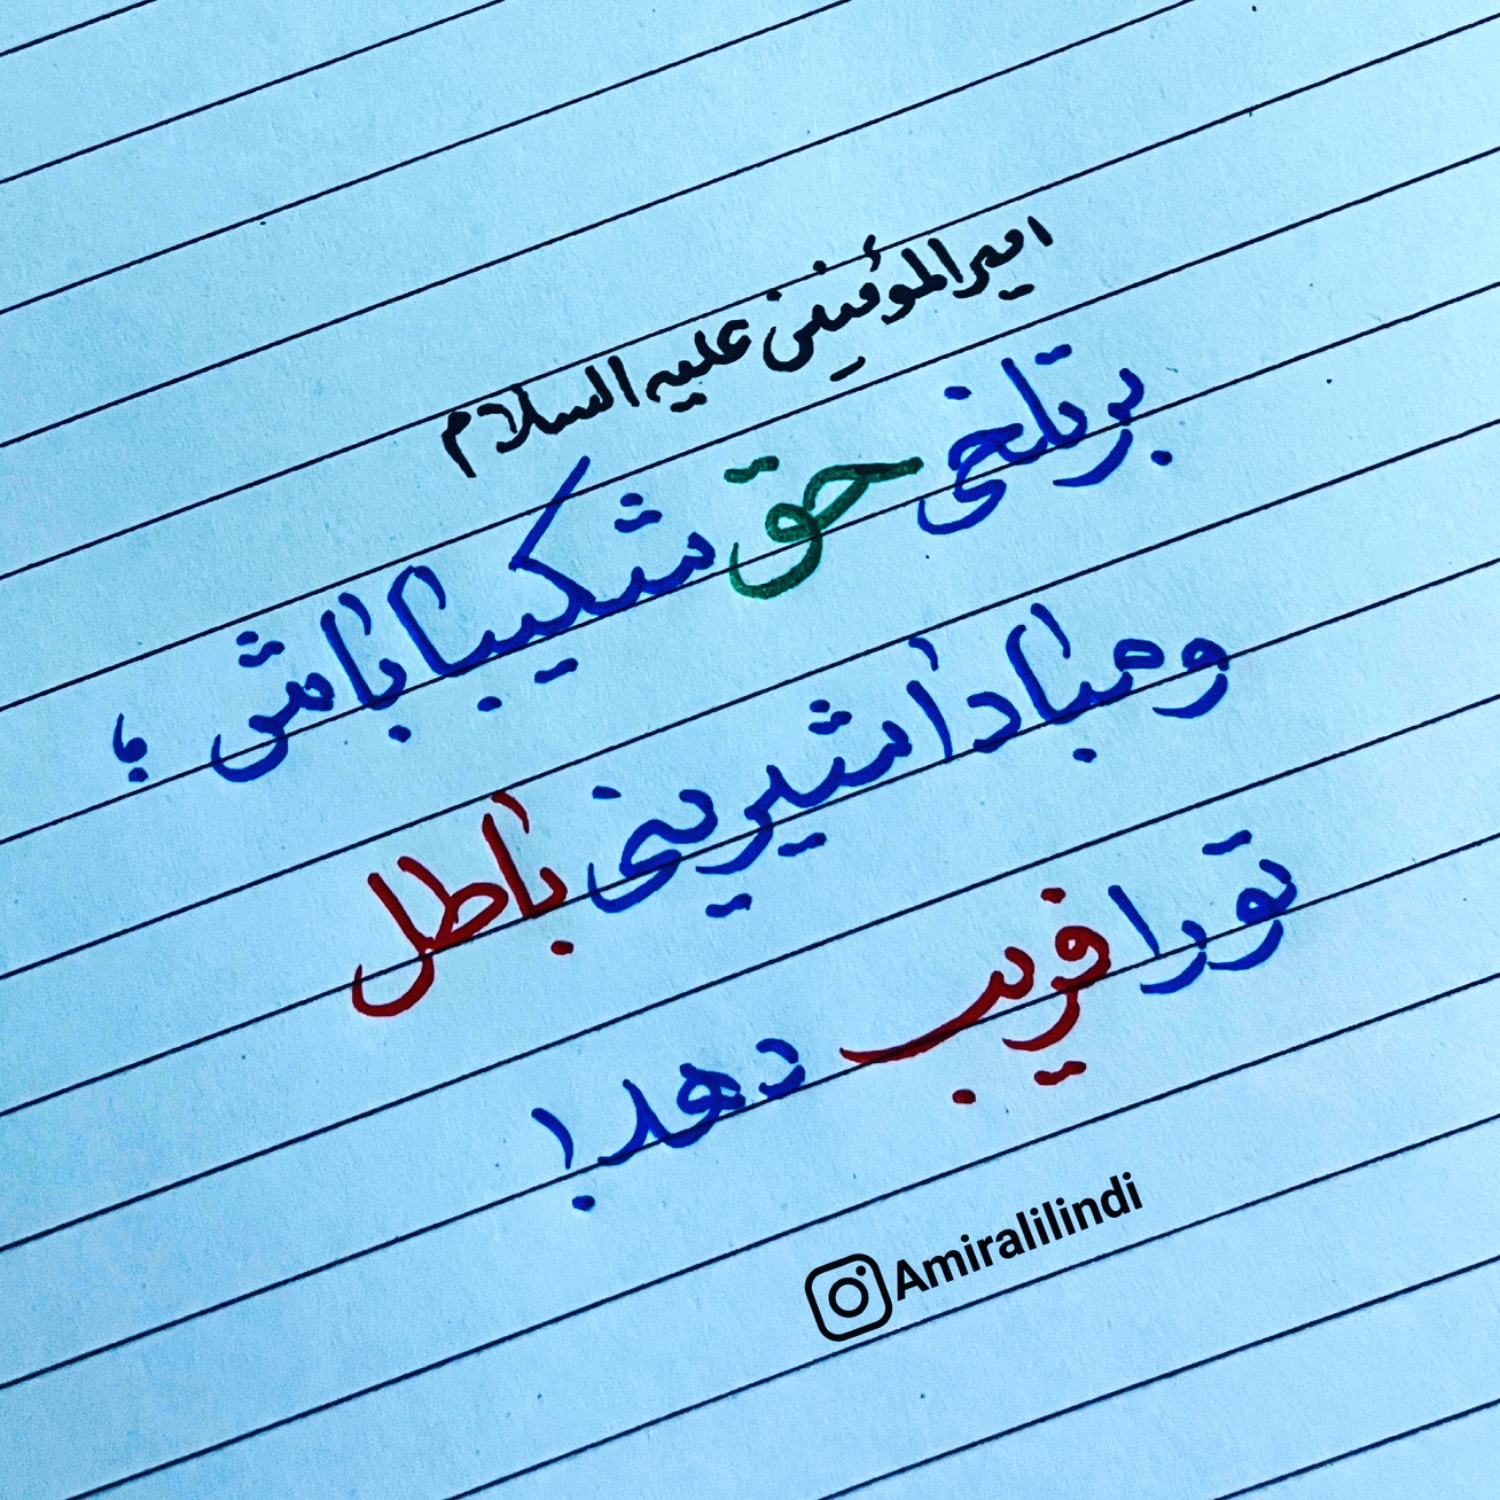 امیرالمؤمنین علیه السلام
بر تلخی حق شکیبا باش ؛
و مبادا شیرینی باطل
تو را فریب دهد !
Amiralilindi